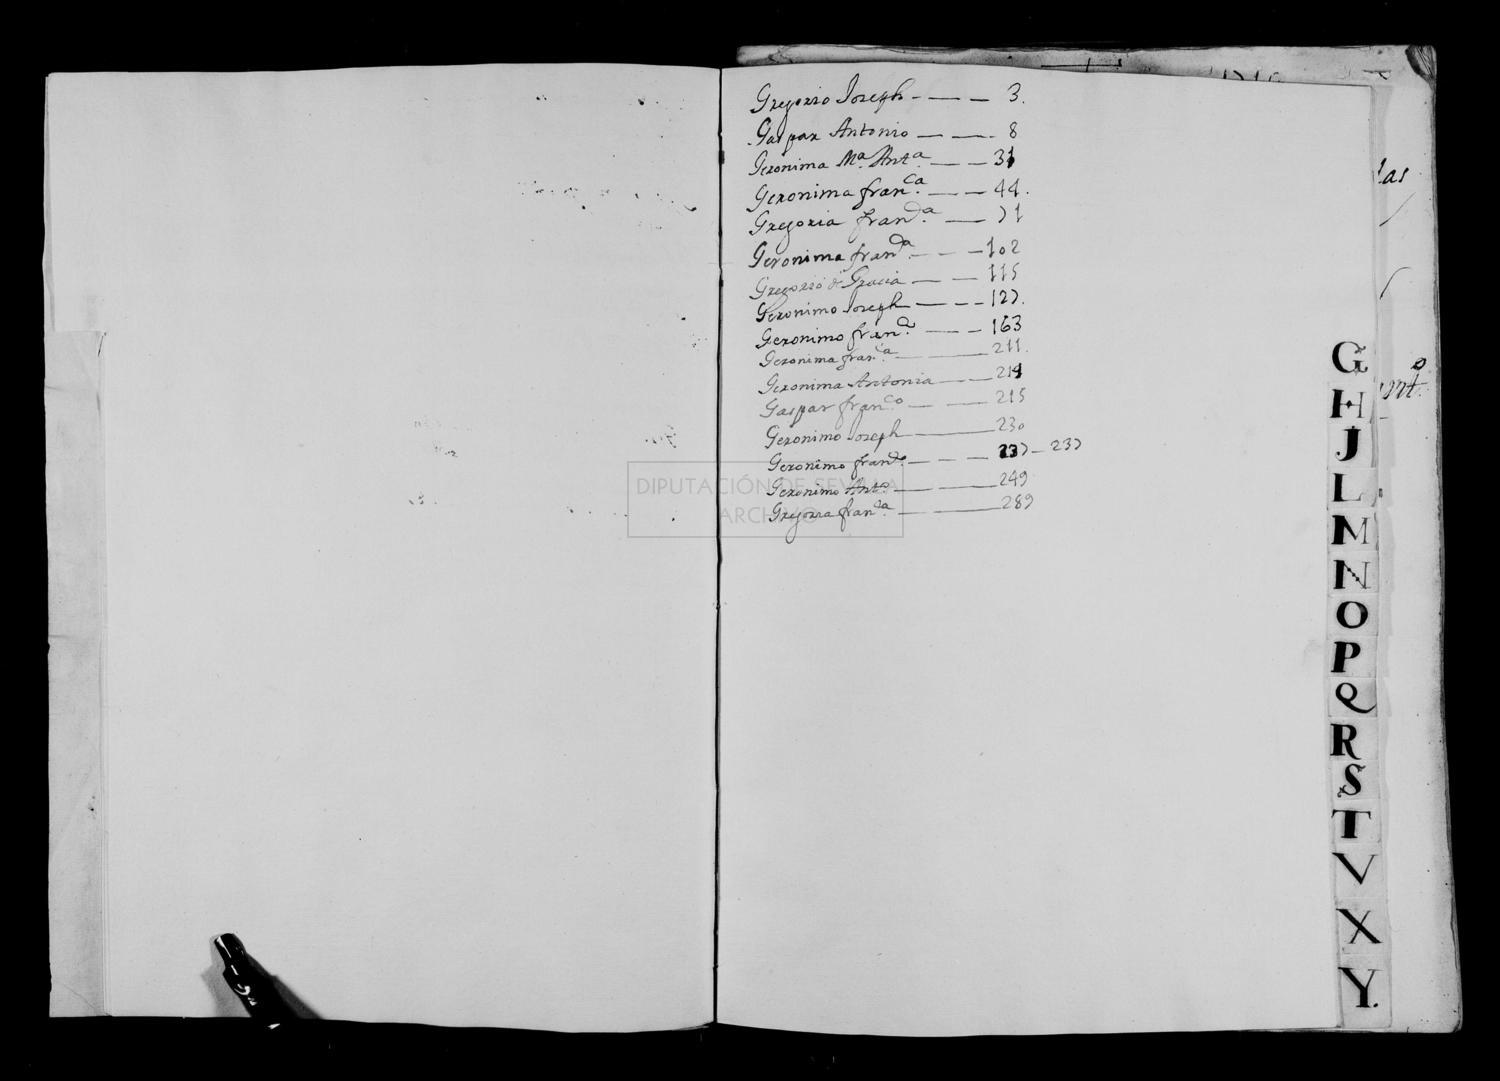 Gregorio Joseph - — — 3.
Gaspar Antonio — — - 8
Geronima Mª Antª — — 31
Geronima franca — — 44.
Gregoria franda — 71
Geronima franda — — — 102
Gregorio de Gracia — — 115
Geronimo Joseph — — — 127.
Geronimo franco — — 163
Geronima franca — — 211.
Geronima Antonia — — 214
Gaspar franco — — 215
Geronimo Joseph — 230
Geronimo frando — — — 237 — 237
Geronimo Anto — — 249
Gregoria franda — — 289
DIPUTACIÓN DE SEVILLA
ARCHIVO
G
H
J
L
M
N
O
P
Q
R
S
T
V
X
Y.